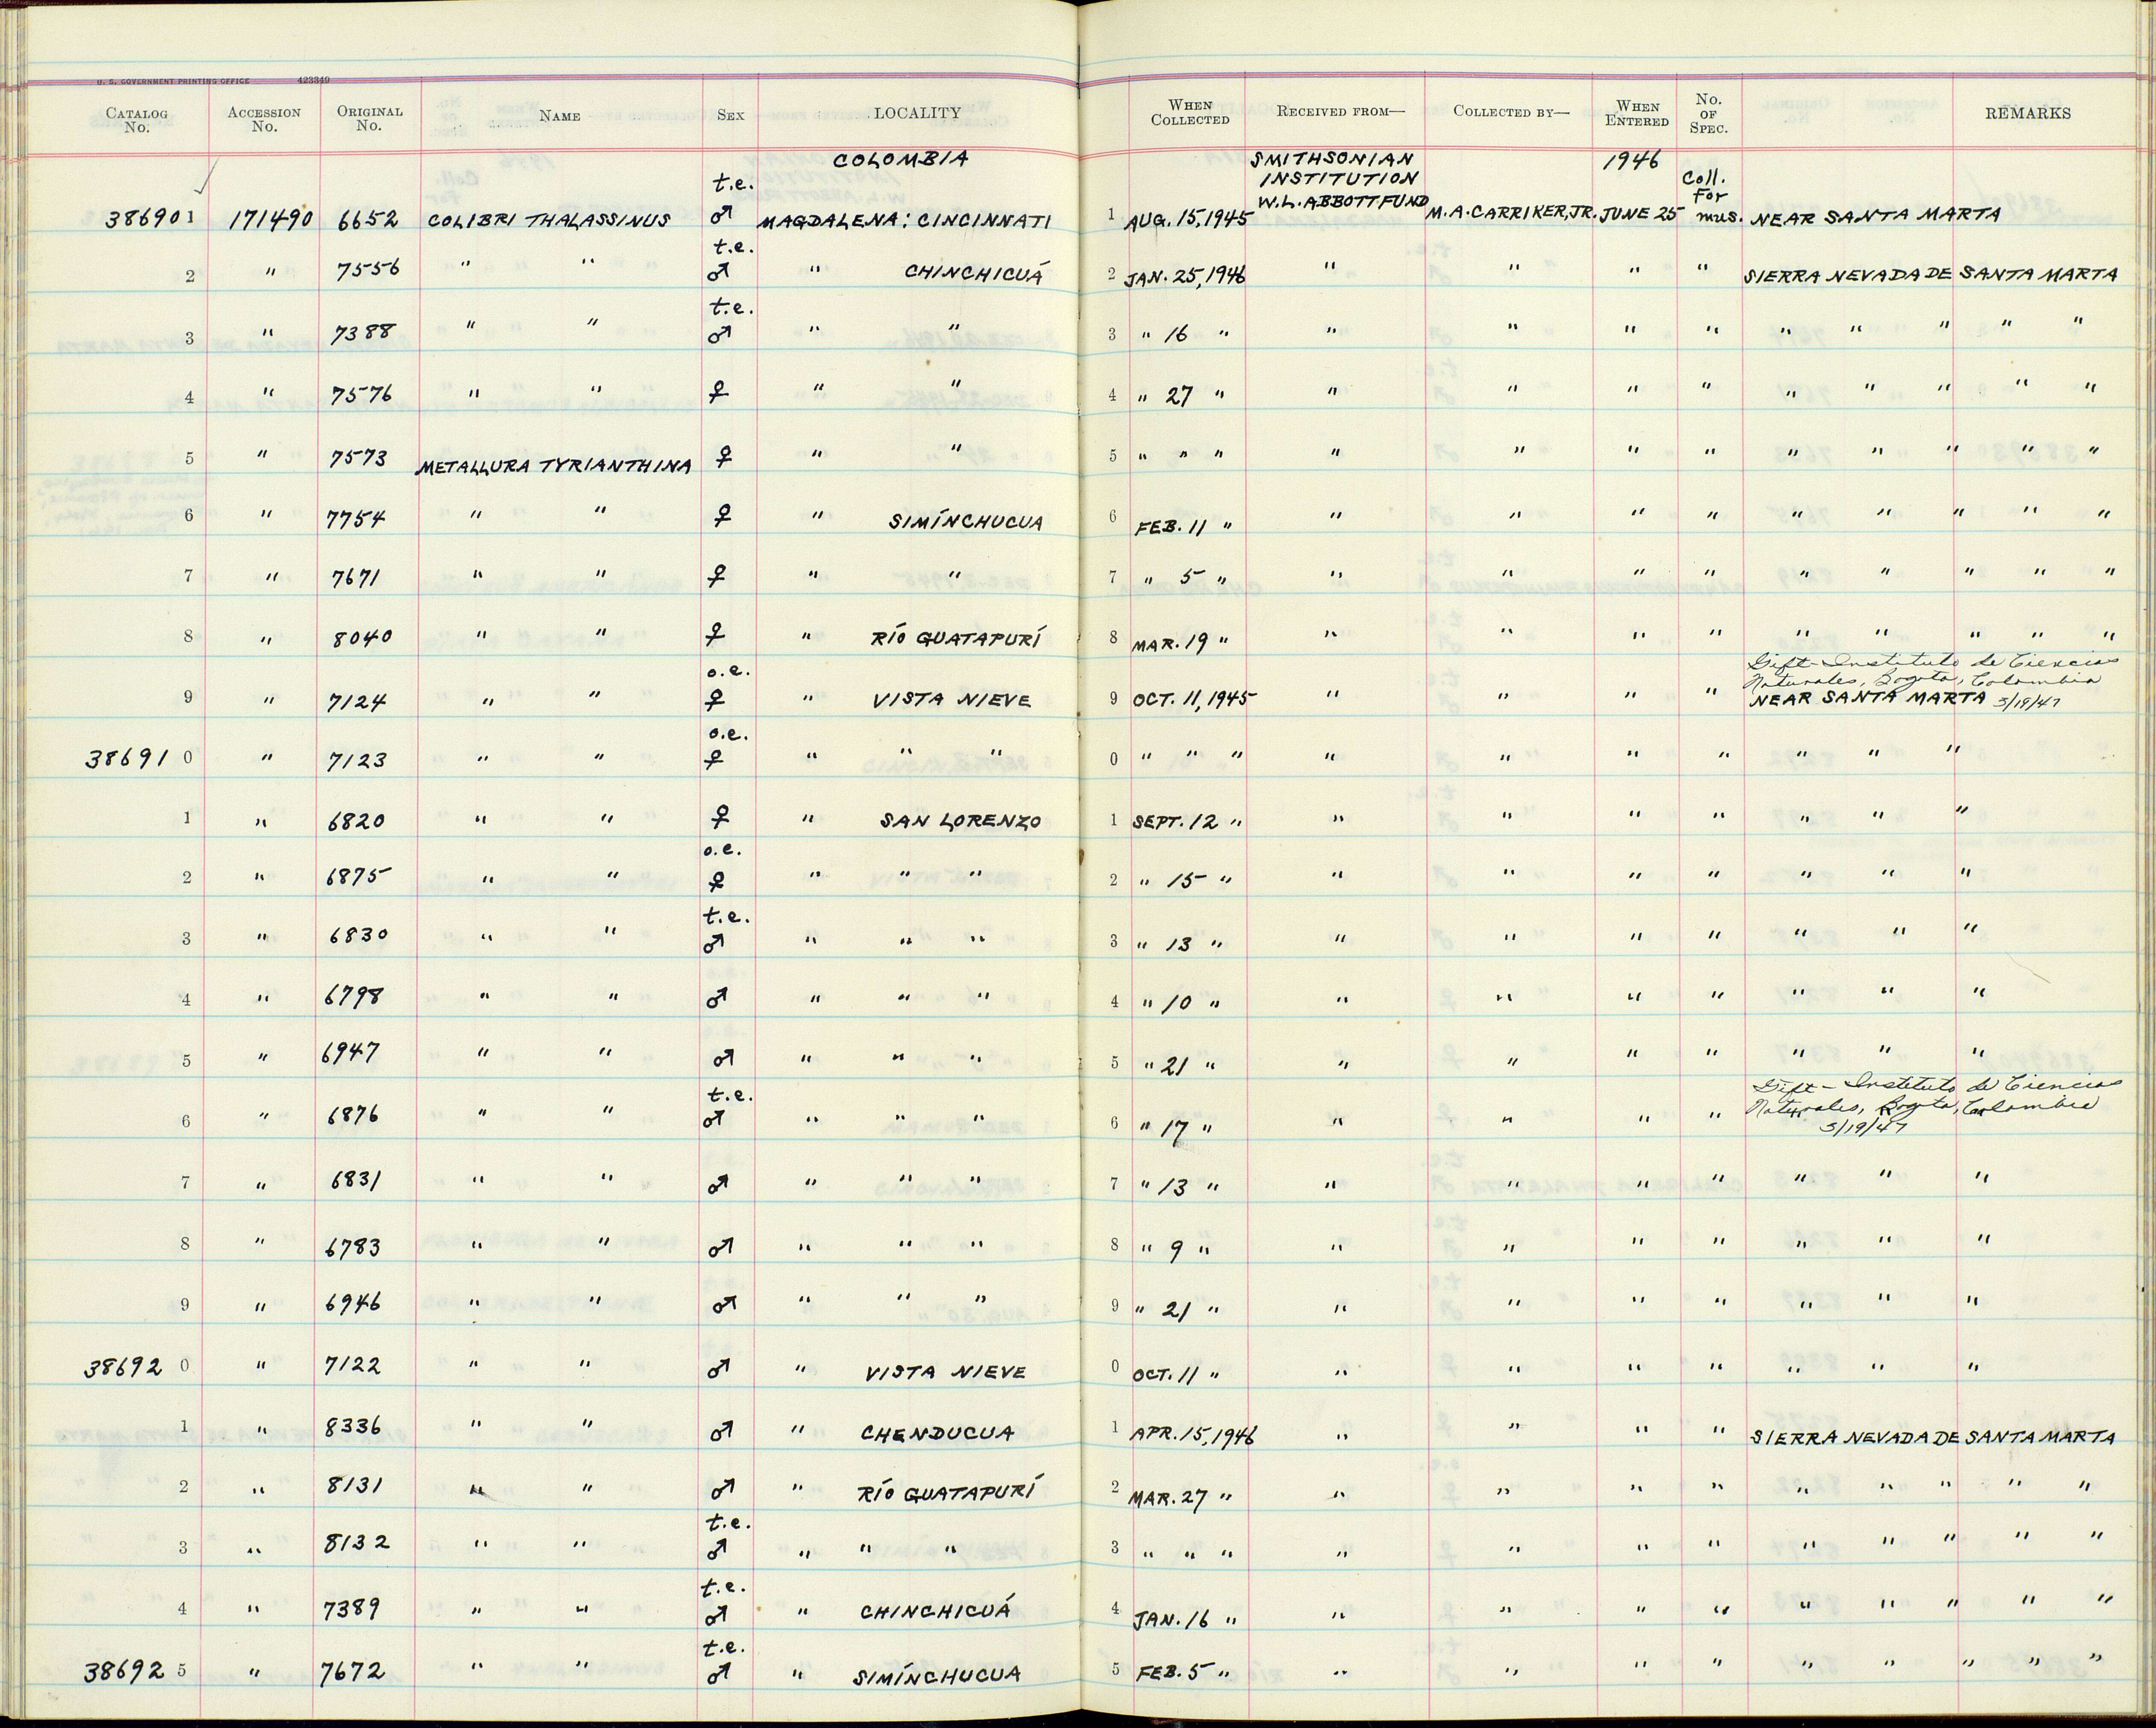 U. S. GOVERNMENT PRINTING OFFICE 423349
CATALOG No. ACCESSION No. ORIGINAL No. NAME SEX LOCALITY WHEN COLLECTED RECEIVED FROM— COLLECTED BY— WHEN ENTERED No. OF SPEC. REMARKS
COLOMBIA SMITHSONIAN INSTITUTION W.L. ABBOTT FUND 1946 Coll. For mus.
386901 171490 6652 COLIBRI THALASSINUS t.e. ♂ MAGDALENA: CINCINNATI 1 AUG. 15, 1945 M.A. CARRIKER, JR. JUNE 25 NEAR SANTA MARTA
2 " 7556 " " t.e. ♂ " CHINCHICUÁ 2 JAN. 25, 1946 " " " " SIERRA NEVADA DE SANTA MARTA
3 " 7388 " " t.e. ♂ " " 3 " 16 " " " " " " " " " "
4 " 7576 " " ♀ " " 4 " 27 " " " " " " " " " "
5 " 7573 METALLURA TYRIANTHINA ♀ " " 5 " " " " " " " " " " " "
6 " 7754 " " ♀ " SIMÍNCHUCUA 6 FEB. 11 " " " " " " " " " "
7 " 7671 " " ♀ " " 7 " 5 " " " " " " " " " "
8 " 8040 " " ♀ " RÍO GUATAPURÍ 8 MAR. 19 " " " " " " " " " "
9 " 7124 " " o.e. ♀ " VISTA NIEVE 9 OCT. 11, 1945 " " " " Gift - Instituto de Ciencias Naturales, Bogota, Colombia NEAR SANTA MARTA 3/19/47
386910 " 7123 " " o.e. ♀ " " " 0 " " " " " " " " " "
1 " 6820 " " ♀ " SAN LORENZO 1 SEPT. 12 " " " " " " " "
2 " 6875 " " o.e. ♀ " " " 2 " 15 " " " " " " " "
3 " 6830 " " t.e. ♂ " " " 3 " 13 " " " " " " " "
4 " 6798 " " ♂ " " " 4 " 10 " " " " " " " "
5 " 6947 " " ♂ " " " 5 " 21 " " " " " " " "
6 " 6876 " " t.e. ♂ " " " 6 " 17 " " " " " Gift - Instituto de Ciencias Naturales, Bogota, Colombia 3/19/47 " " "
7 " 6831 " " ♂ " " " 7 " 13 " " " " " " " "
8 " 6783 " " ♂ " " " 8 " 9 " " " " " " " "
9 " 6946 " " ♂ " " " 9 " 21 " " " " " " " "
386920 " 7122 " " ♂ " VISTA NIEVE 0 OCT. 11 " " " " " " " "
1 " 8336 " " ♂ " CHENDUCUA 1 APR. 15, 1946 " " " " SIERRA NEVADA DE SANTA MARTA
2 " 8131 " " ♂ " RÍO GUATAPURÍ 2 MAR. 27 " " " " " " " " " "
3 " 8132 " " t.e. ♂ " " " 3 " " " " " " " " " " " "
4 " 7389 " " t.e. ♂ " CHINCHICUÁ 4 JAN. 16 " " " " " " " " " "
386925 " 7672 " " t.e. ♂ " SIMÍNCHUCUA 5 FEB. 5 " " " " " " " " " "